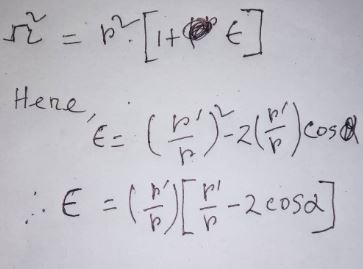 𝓇² = r²·[1+ ϵ]
Here,
ϵ = (r'/r)² - 2(r'/r) cosα
∴ ϵ = (r'/r)[r'/r - 2cosα]